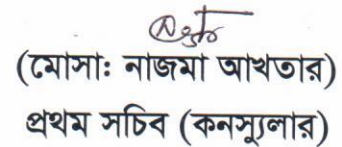 (মোসা: নাজমা আখতার)
প্রথম সচিব (কনস্যুলার)